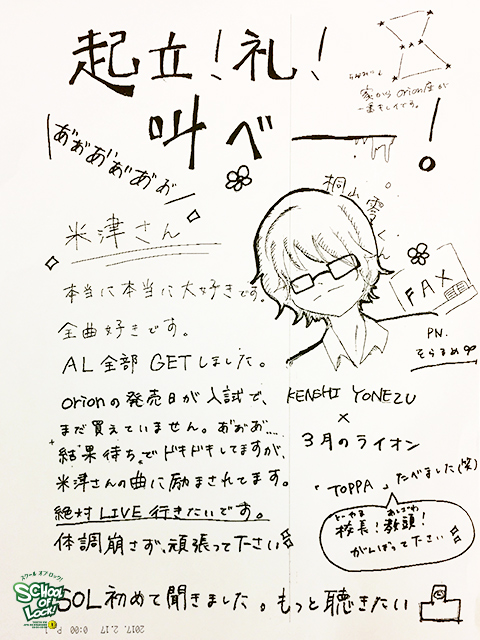 起立！礼！
叫べーーー！
あ゛ぁあ゛ぁあ゛ぁぉー
家からorion座が
一番キレイです。
桐山零くん
米津さん
本当に本当に大好きです。
全曲好きです。
AL全部 GETしました。
orionの発売日が入試で、
まだ買えていません。あ゛ぁあ゛ぁ…
結果待ちでドキドキしてますが、
米津さんの曲に励まされてます。
絶対LIVE行きたいです。
体調崩さず、頑張って下さい
FAX
PN.
そらまめ
KENSHI YONEZU
×
3月のライオン
「TOPPA」たべました(笑)
とーやま あしざわ
校長！教頭！
がんばって下さい
SOL初めて聞きました。もっと聴きたい
スクール オブ ロック！
SCHOOL OF LOCK!
2017. 2.17 0:00